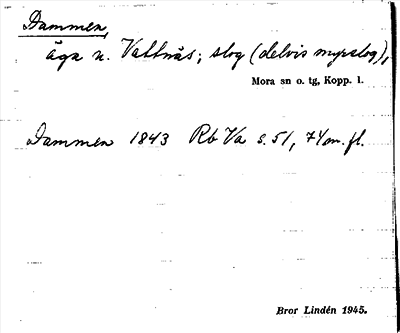 Dammen,
äga n. Vattnäs; slog (delvis myrslog),
Mora sn o. tg, Kopp. l.
Dammen 1843 Rb Va s. 51, 74 m. fl.
Bror Lindén 1945.